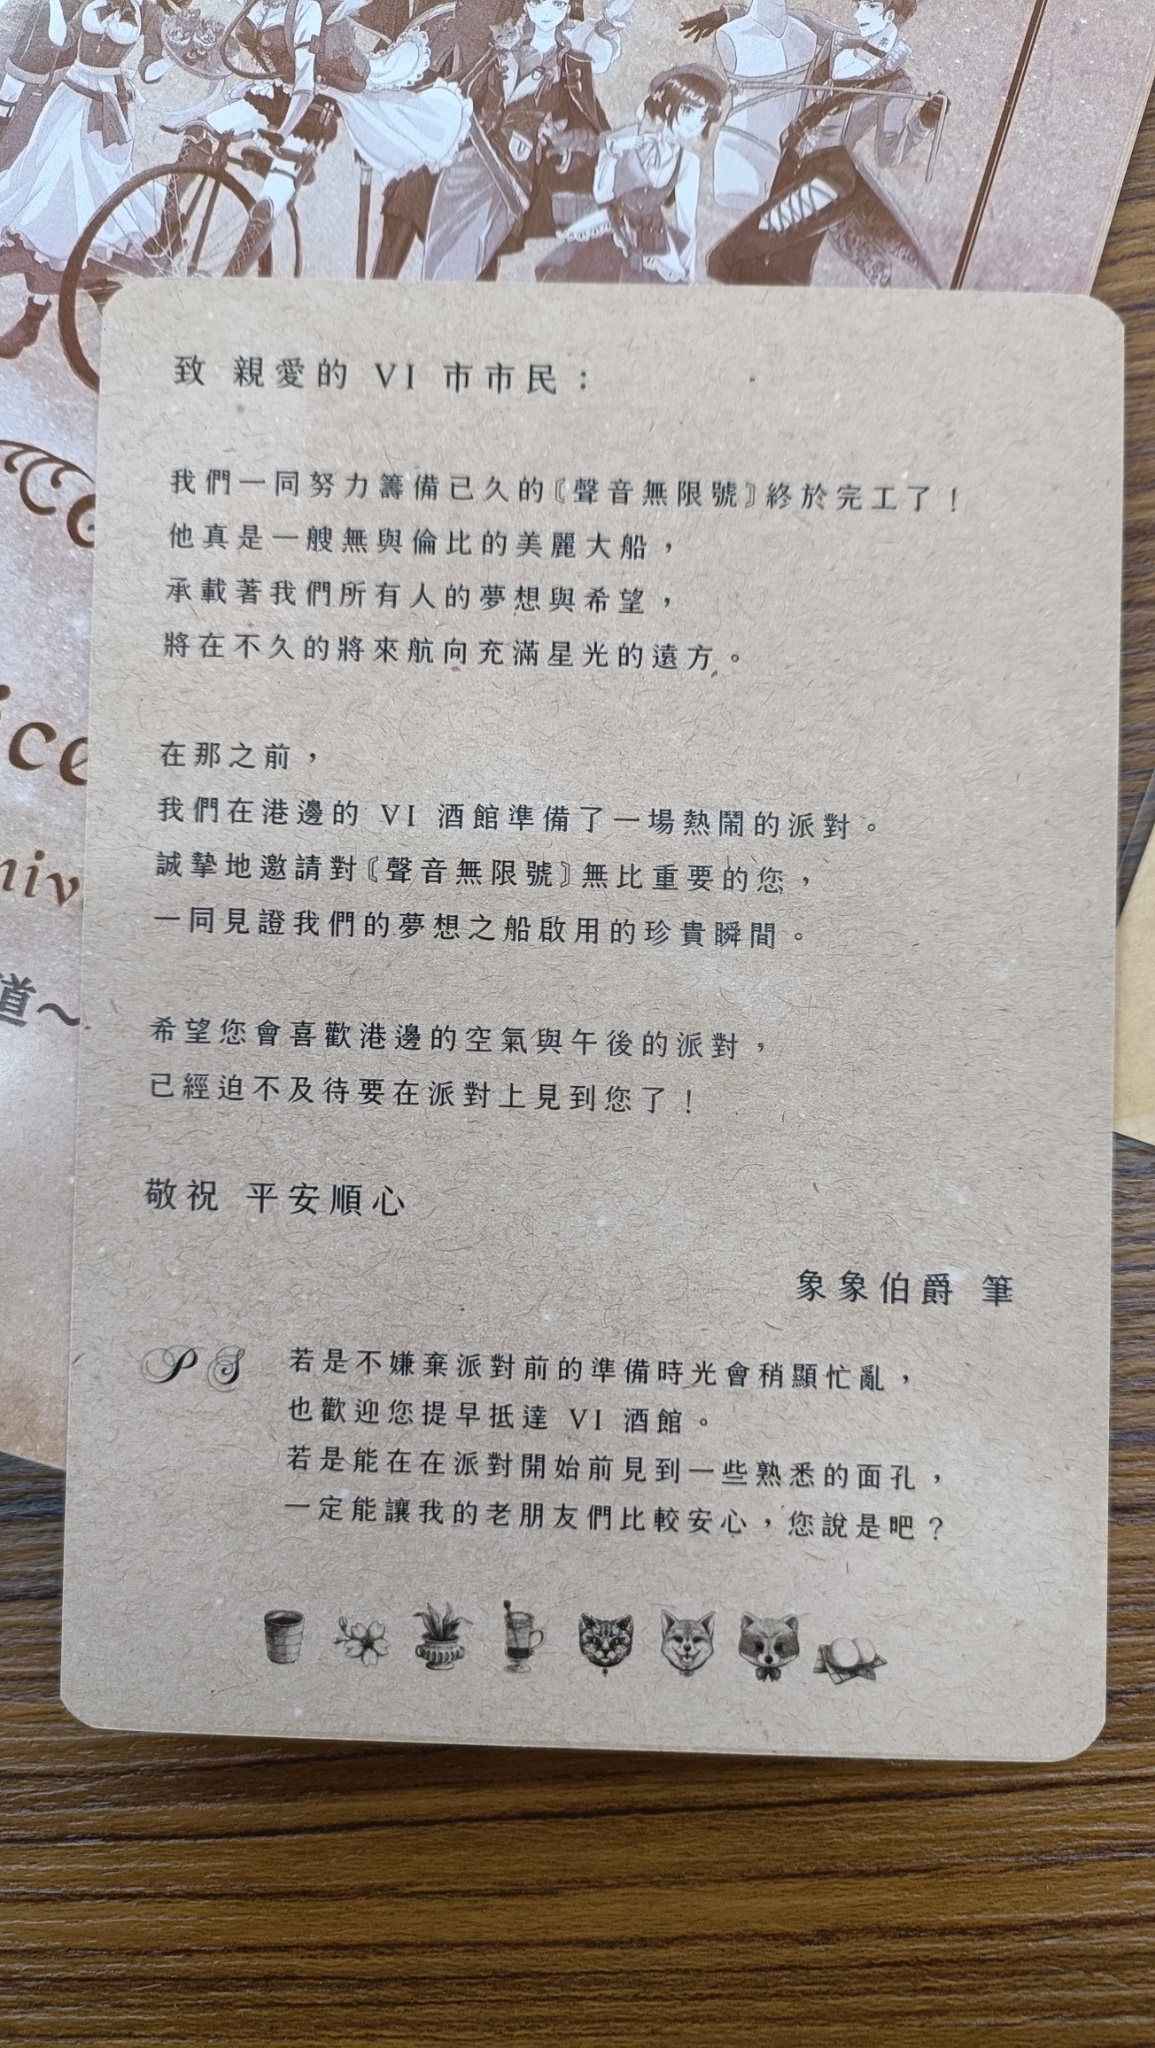 致 親愛的 VI 市市民：
我們一同努力籌備已久的〖聲音無限號〗終於完工了！
他真是一艘無與倫比的美麗大船，
承載著我們所有人的夢想與希望，
將在不久的將來航向充滿星光的遠方。
在那之前，
我們在港邊的 VI 酒館準備了一場熱鬧的派對。
誠摯地邀請對〖聲音無限號〗無比重要的您，
一同見證我們的夢想之船啟用的珍貴瞬間。
希望您會喜歡港邊的空氣與午後的派對，
已經迫不及待要在派對上見到您了！
敬祝 平安順心
象象伯爵 筆
PS 若是不嫌棄派對前的準備時光會稍顯忙亂，
也歡迎您提早抵達 VI 酒館。
若是能在在派對開始前見到一些熟悉的面孔，
一定能讓我的老朋友們比較安心，您說是吧？
ice
niv
道～